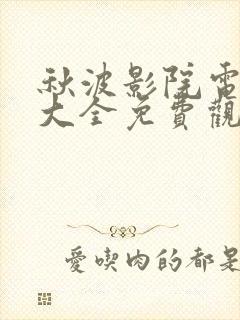 秋波影院電
大全免費觀
愛喫肉的都是